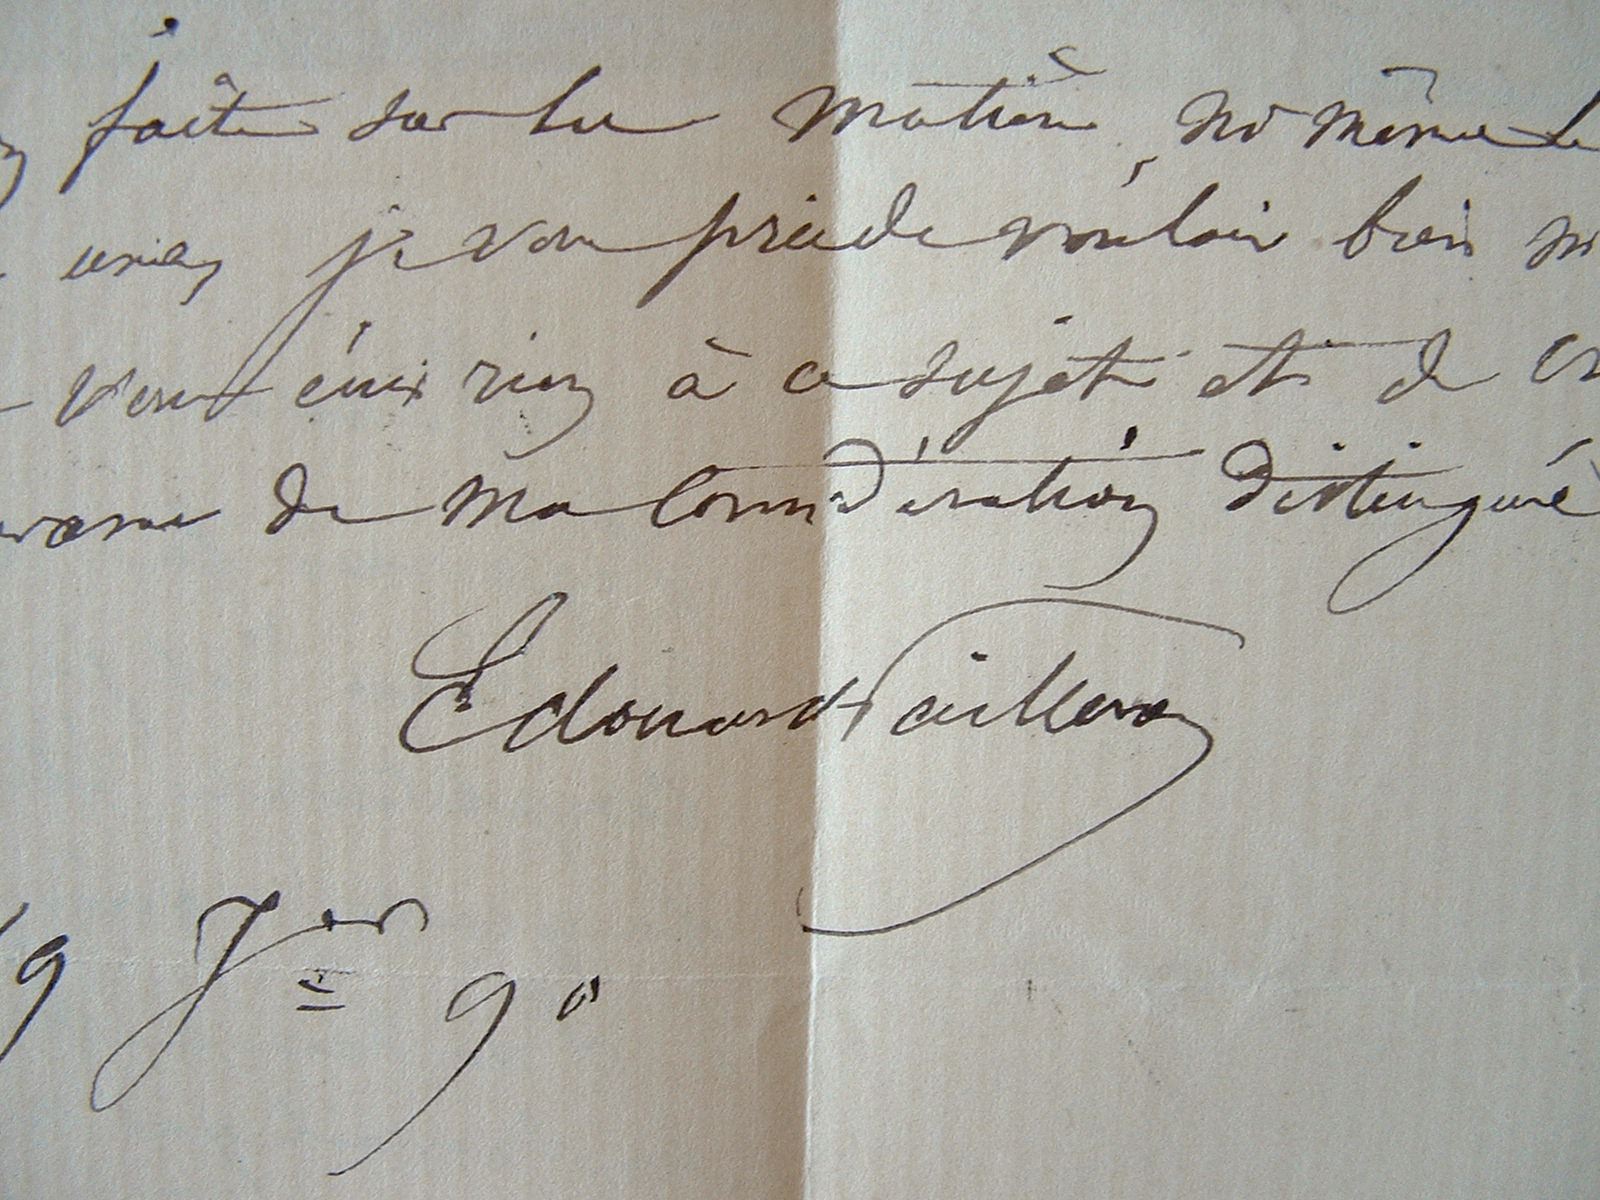 faite sur la matière, ni même le
je vous prie de vouloir bien
rien à ce sujet et de
de ma considération distingué
Edouard Pailleron
9 Jer 90